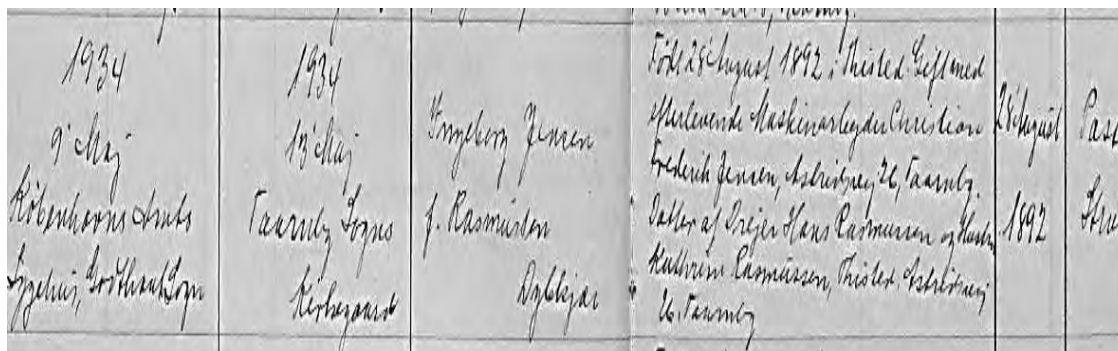 1934
9' Maj
Københavns Amts
Sygehus, Godthaab Sogn
1934
13' Maj
Taarnby Sogns
Kirkegaard
Ingeborg Jensen
f. Rasmussen
Dybkjær
Født 28' August 1892 i Thisted. Gift med
efterlevende Maskinarbejder Christian
Frederik Jensen, Astridsvej 26, Taarnby.
Datter af Drejer Hans Rasmussen og Hustru
Kathrine Rasmussen, Thisted. Astridsvej
26, Taarnby
28' August
1892